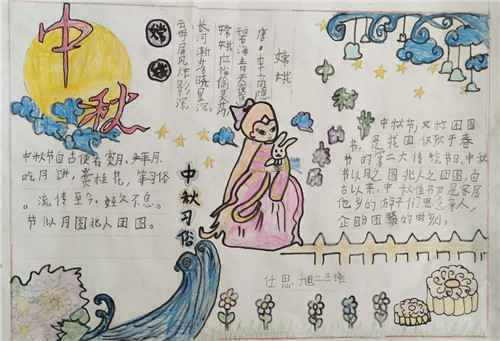 中秋
中秋节自古便有赏月、拜月、
吃月饼、赏桂花、等习俗
。流传至今,经久不息。
节以月圆兆人团圆。
嫦娥
嫦娥
唐·李商隐
碧海青天夜
嫦娥应悔偷灵药,
长河渐落晓星沉。
云母屏风烛影深
中秋习俗
中秋节的来历
中秋节,又称团圆
节,是我国仅次于春
节的第二大传统节日,中秋
节以月之圆兆人之团圆,自
古以来,中秋佳节更是寓居
他乡的游子们思念亲人,
企盼团聚的时刻。
任思旭二三班